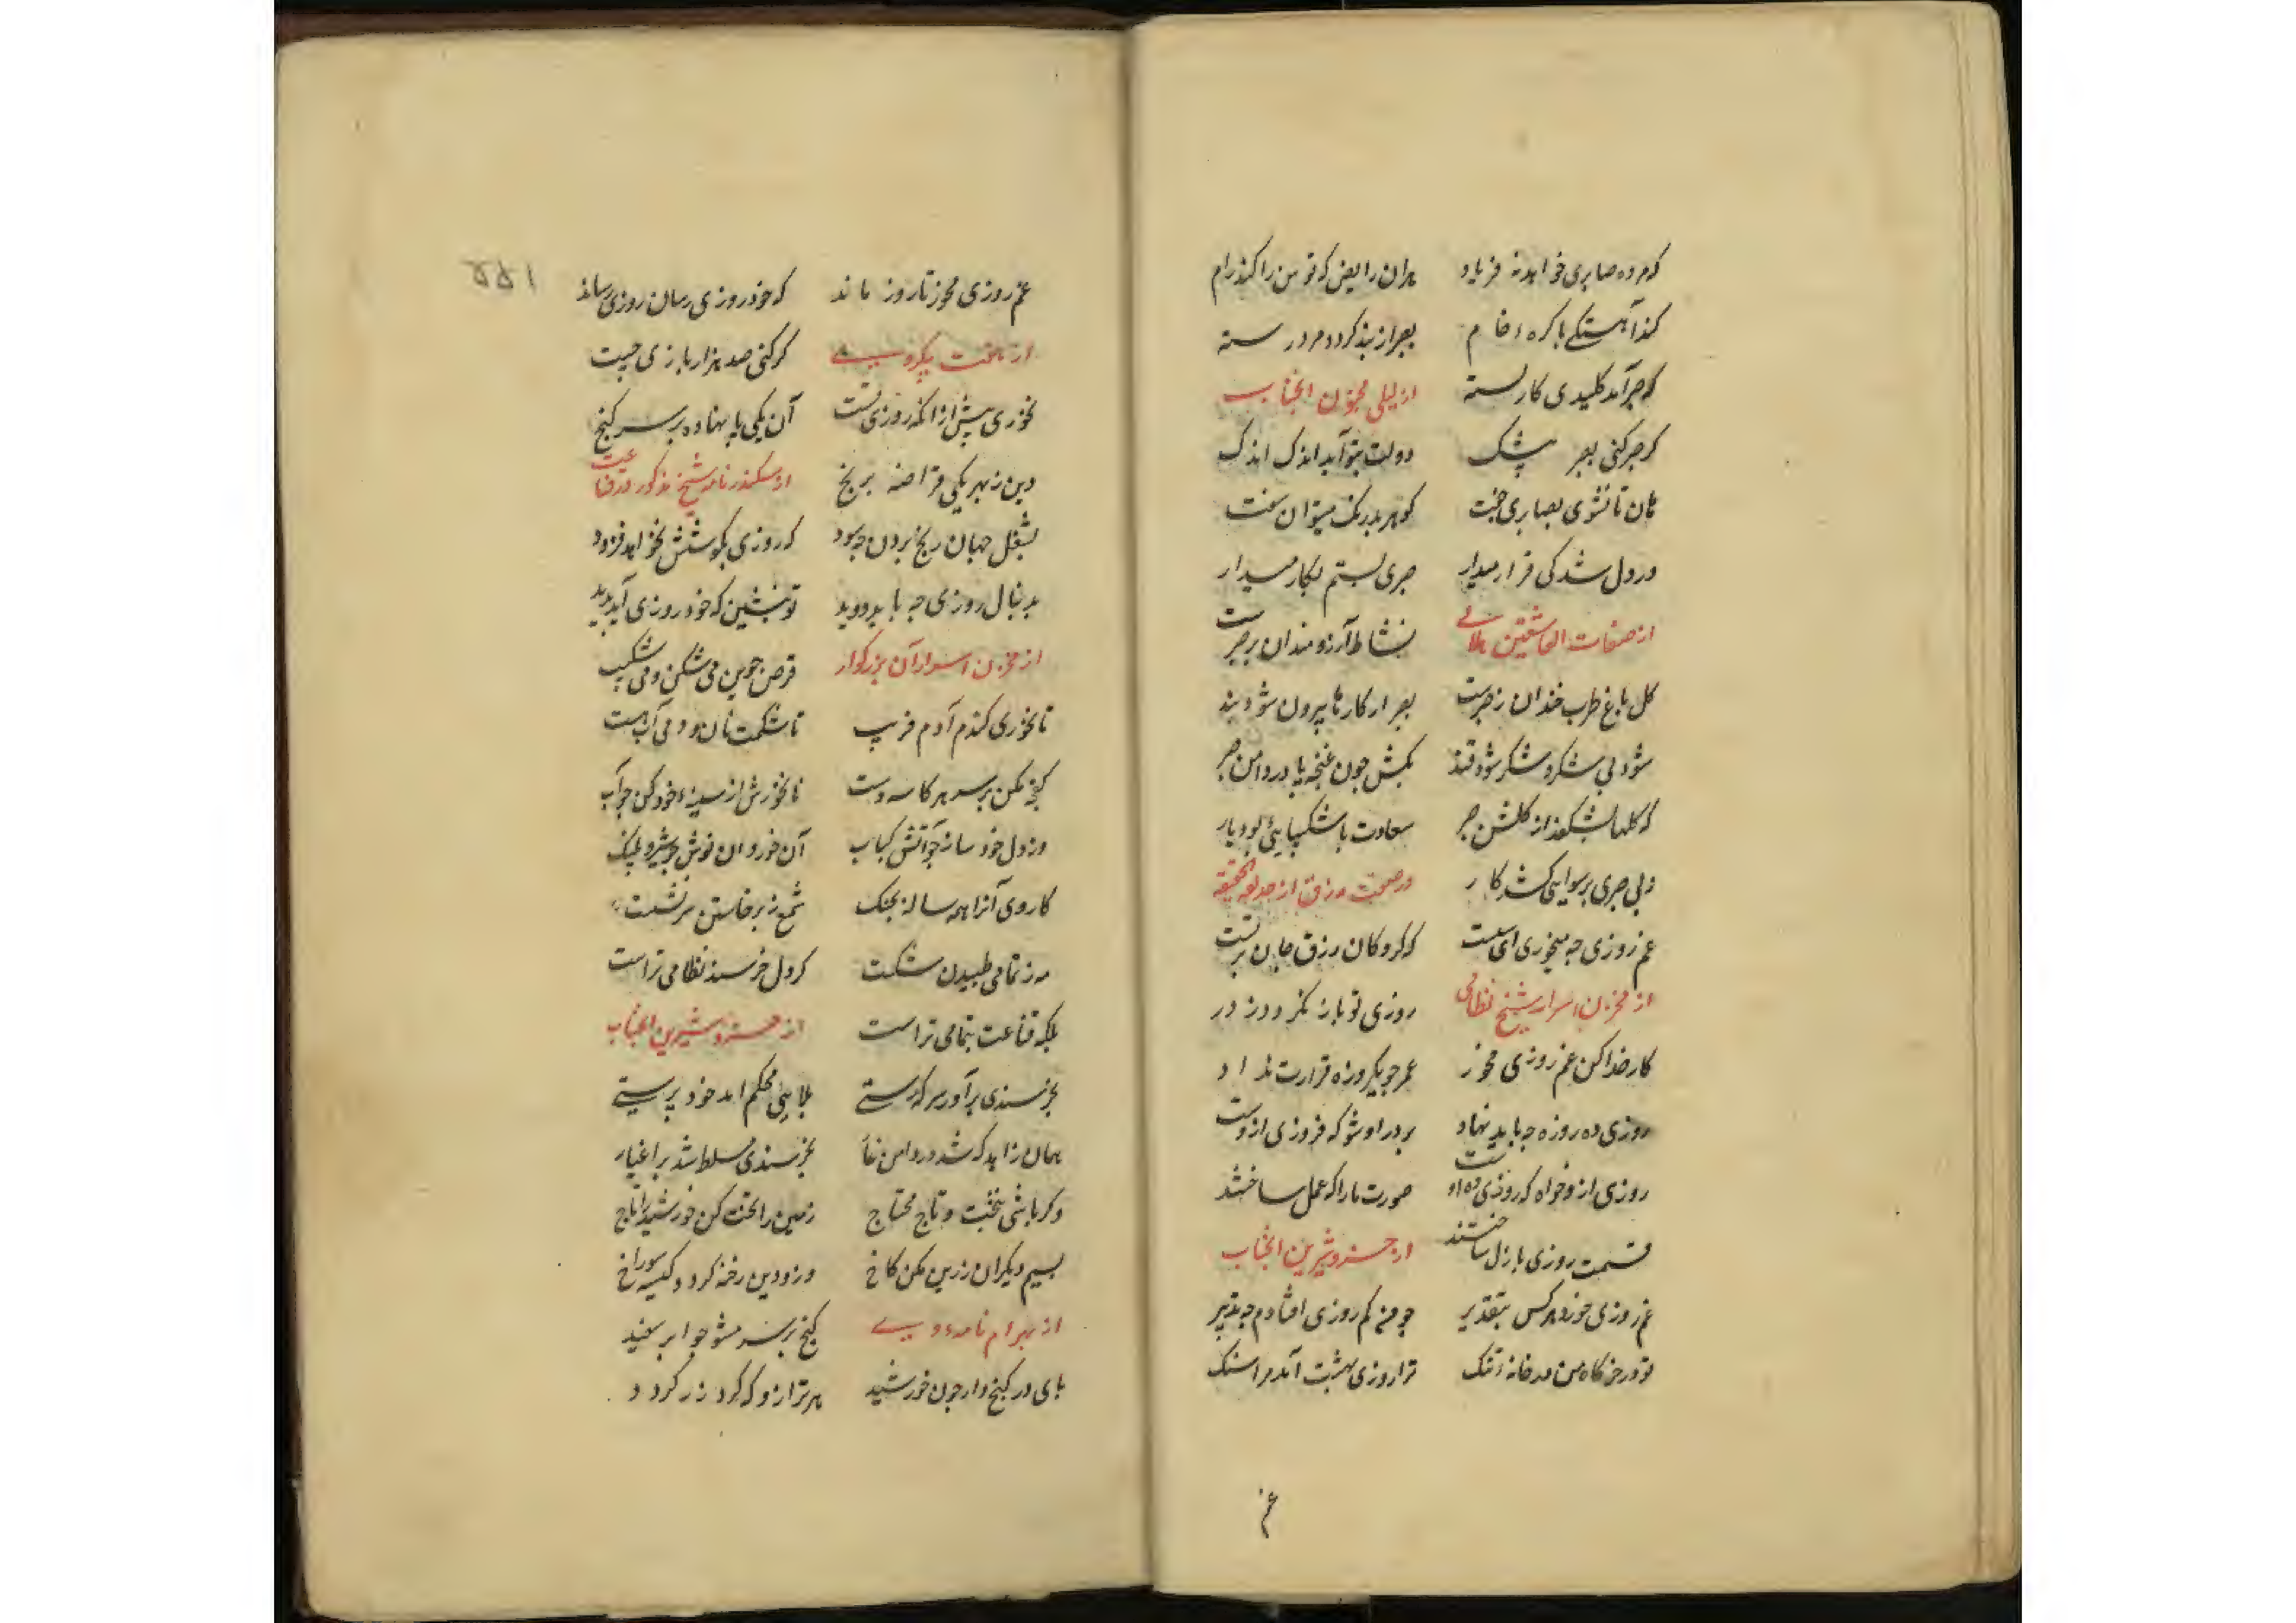 که مرده صابری خواهد نه فریاد	بدان رایض که توسن را کند رام
کند آهستگی با کره خام	بصبر از بند گردد مرد رسته
که صبر آمد کلیدی کار بسته	از لیلی مجنون انجناب
گر صبر کنی بصبر بیشک	دولت بتو آید اندک اندک
هان تا نشوی بصابری جفت	گوهر بدرنگ میتوان سفت
در دل شدگی قرار میدار	صبری بستم بکار میدار
از صفات العاشقین هلالی	نشاط آرزومندان بصبرست
گل باغ طرب خندان ز صبرست	بصبر از کارها بیرون شود بند
شود نی شکر و شکر شود قند	بکش چون غنچه پا در دامن صبر
که گلها بشکفد از گلشن صبر	سعادت با شکیبائی بود یار
ز بی صبری برسوایی کشد کار	در صحبت رزق از حدیقه الحقیقه
غم روزی چه میخوری ای	که گروگان رزق جان
از مخزن اسرار شیخ نظامی	روزی تو باز نگردد ز در
کار خدا کن غم روزی مخور	عمر چو یکروزه قرارت نداد
روزی ده روزه چه باید نهاد	بر در او شو که فروزی ازوست
روزی ازو خواه که روزی ده اوست	صورت ما را که عمل ساختند
قسمت روزی بازل ساختند	از خسرو شیرین انجناب
غم روزی خورد هر کس بتقدیر	چو من کم روزی افتادم چه تدبیر
تو در خرگاه من در خانه تنگ	ترا روزی بهشت آمد مرا سنگ
غم
۱۵۵
غم روزی مخور تا روز ماند	که خود روزی رسان روزی رساند
از هفت پیکر وی	گر کنی صد هزار بازی چست
نخوری بیش از آنکه روزی تست	آن یکی پا نهاده بر سر گنج
وین ز بهر یکی قراضه برنج	از سکندر نامه شیخ مذکور در قناعت
بشغل جهان رنج بردن چه سود	که روزی بکوشش نخواهد فزود
بدنبال روزی چه باید دوید	تو بنشین که خود روزی آید پدید
از مخزن اسرار آن بزرگوار	قرص جوین می شکن و می شکیب
تا نخوری گندم آدم فریب	تا شکمت نان و دمی آب هست
کفچه مکن بر سر هر کاسه دست	نانخورش از سینه خود کن چو آب
وز دل خود ساز چو آتش کباب	آن خور و آن نوش چو شیر و پلنگ
کاوری آنرا همه ساله بچنگ	شمع ز برخاستن سر نشست
مه ز تمامی طلبیدن شکست	گر دل خرسند نظامی تراست
بلکه قناعت بتمامی تراست	از خسرو شیرین انجناب
بخرسندی برآور سر که رستی	بلایی محکم آمد خود پرستی
همان زاهد که شد در دامن غار	بخرسندی مسلط شد بر اغیار
وگر باشی بتخت و تاج محتاج	زمین را تخت کن خورشید را تاج
بسیم دیگران زرین مکن کاخ	وزو دین رخنه گردد کیسه سوراخ
از بهرام نامه وی	گنج بر سر مشو چو ابر سفید
پای در گنج دار چون خورشید	هر ترازو که گرد زر گردد